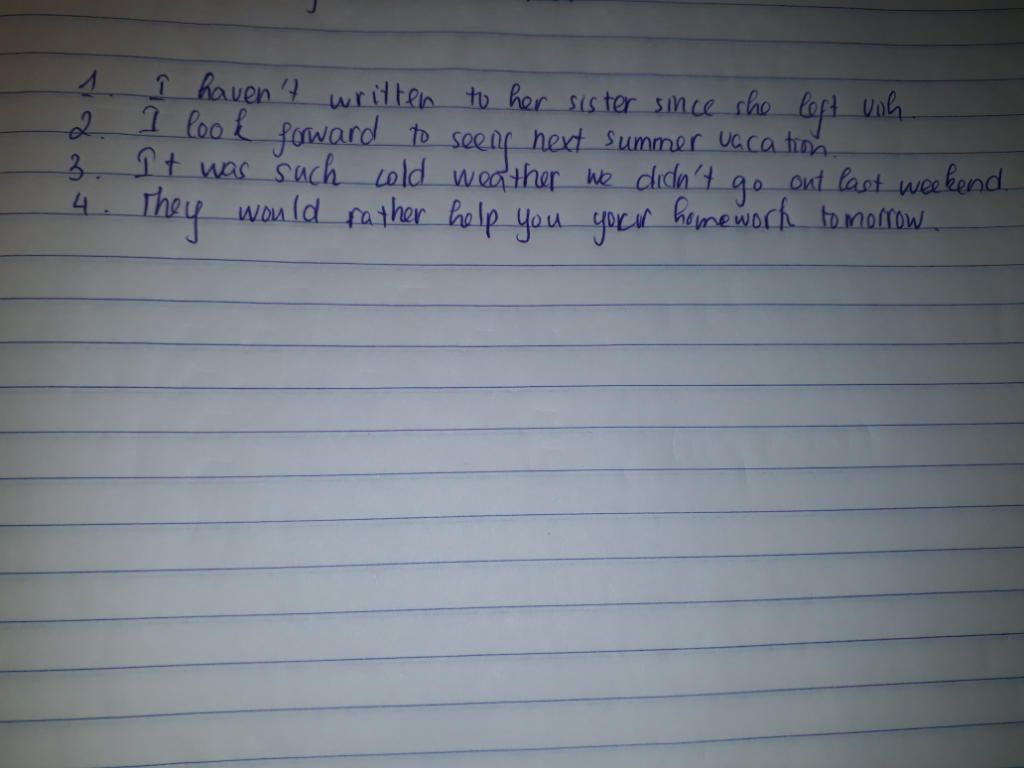 1. I haven't written to her sister since she left
2. I look forward to seeing next summer vacation.
3. It was such cold weather we didn't go out last weekend.
4. They would rather help you your homework tomorrow.